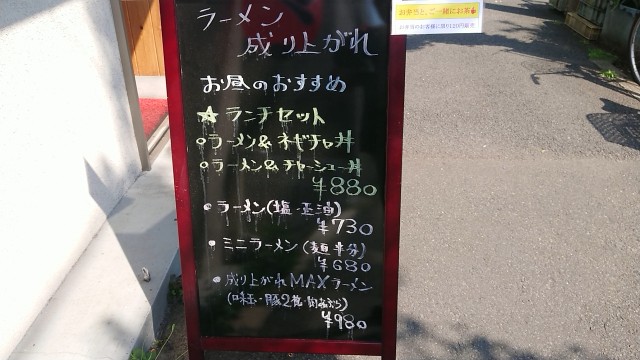 ラーメン
成り上がれ
お弁当と、ご一緒にお茶
お昼のおすすめ
★ランチセット
○ラーメン&ネギチャ丼
○ラーメン&チャーシュー丼
¥880
●ラーメン(塩・正油)
¥730
●ミニラーメン(麺半分)
¥680
●成り上がれMAXラーメン
(味玉・豚2枚・
¥980